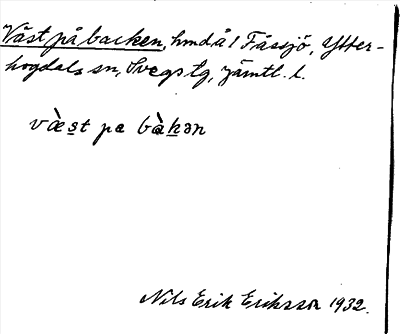 Väst på backen, hmd å 1 Fåssjö, Ytter-
hogdals sn, Svegs tg, Jämtl. l.
væ̀s̲t pa bàk̲ən
Nils Erik Eriksson 1932.